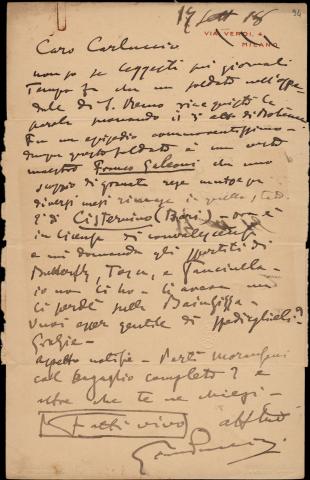 17 Sett 18
94
VIA VERDI, 4
MILANO
Caro Carluccio
non so se leggesti sui giornali
tempo fa che un soldato nell'ospe
dale di S. Remo riacquistò la
parola suonando il 3° atto di Bohème
Fu un episodio commoventissimo -
dunque questo soldato è un certo
maestro Franco Galeoni che uno
scoppio di granata rese muto per
diversi mesi
È di Cisternino (Bari) - ora è
in licenza di convalescenza
e mi domanda gli spartiti di
Butterfly, Tosca, e Fanciulla -
io non li ho -
ci perdè sulla
Vuoi esser gentile di spedirglieli
Grazie -
aspetto notizie - Partì Morangoni
col bagaglio completo? e
altro che te ne
Fatti vivo aff tuo
GPuccini